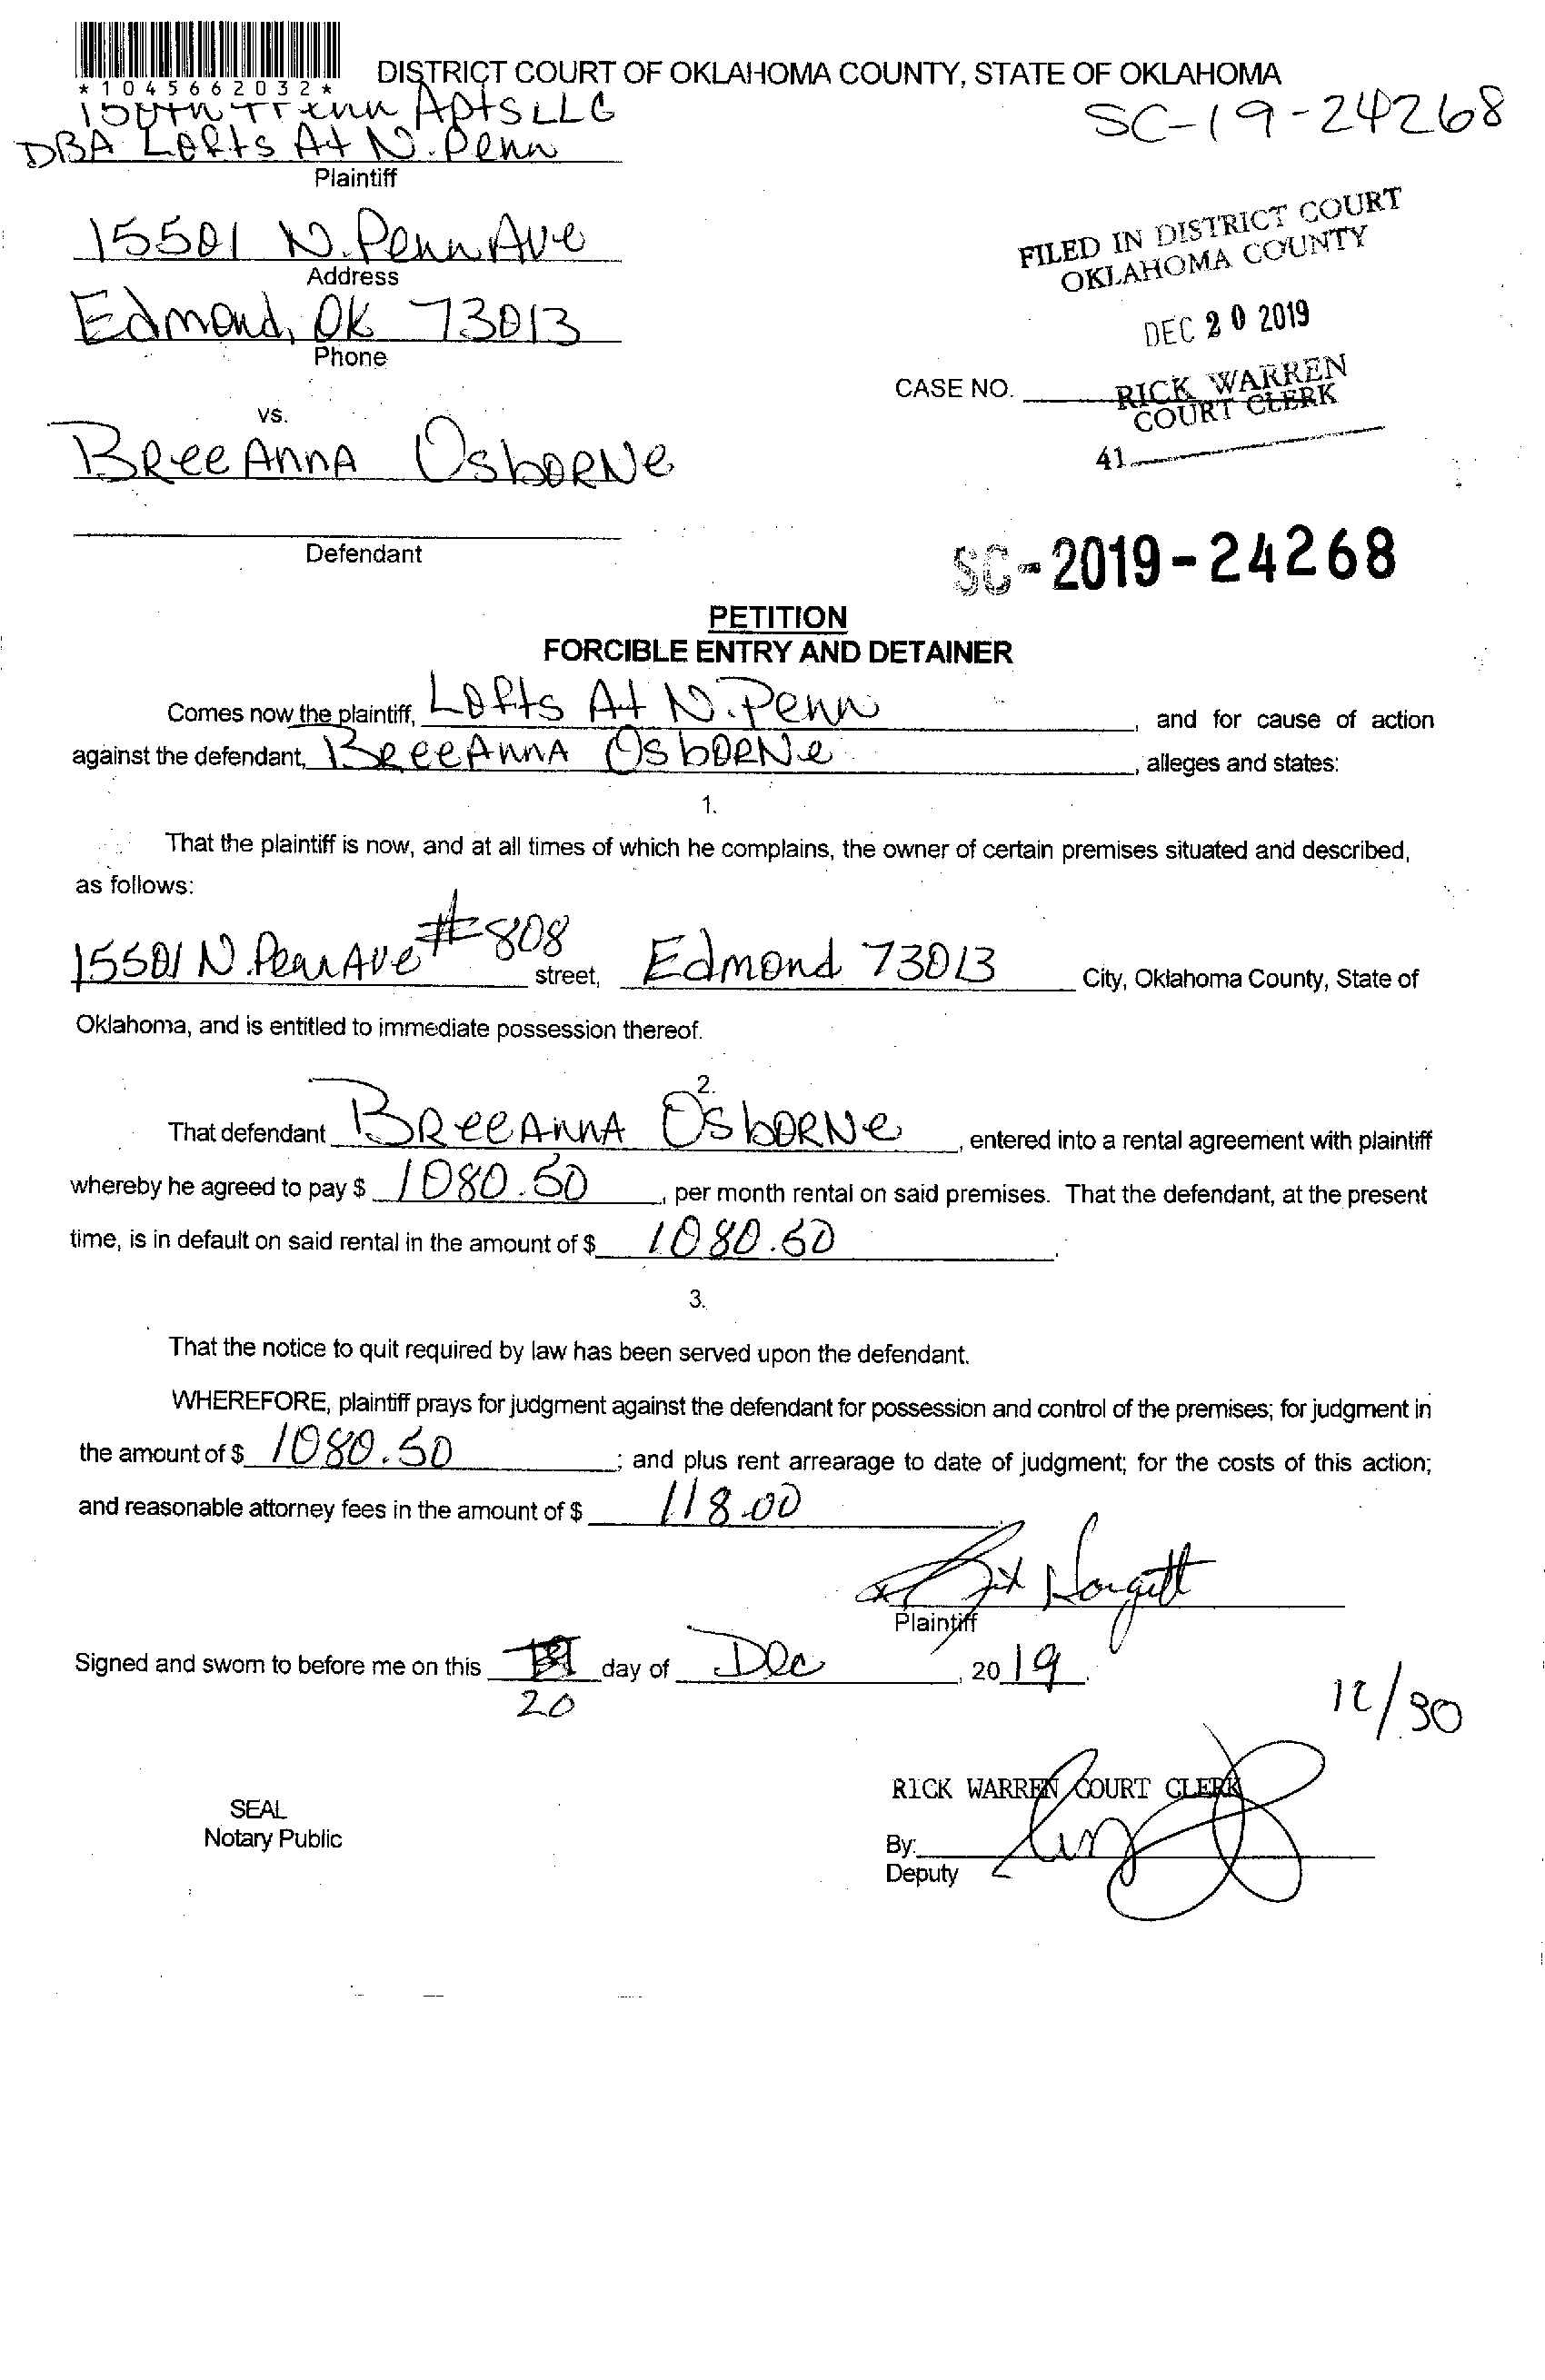 *1045662032*
DISTRICT COURT OF OKLAHOMA COUNTY, STATE OF OKLAHOMA
Apts LLC
SC-19-24268
DBA Lofts At N. Penn
Plaintiff
15501 N. Penn Ave
Address
FILED IN DISTRICT COURT
OKLAHOMA COUNTY
Edmond, OK 73013
Phone
DEC 20 2019
CASE NO.
RICK WARREN
COURT CLERK
vs.
BReeAnnA OsboRNe
41
Defendant
SC-2019-24268
PETITION
FORCIBLE ENTRY AND DETAINER
Comes now the plaintiff, Lofts At N. Penn, and for cause of action
against the defendant, BReeAnnA OsboRNe, alleges and states:
1.
That the plaintiff is now, and at all times of which he complains, the owner of certain premises situated and described,
as follows:
15501 N. Penn Ave #808 street, Edmond 73013 City, Oklahoma County, State of
Oklahoma, and is entitled to immediate possession thereof.
2.
That defendant BReeAnnA OsboRNe, entered into a rental agreement with plaintiff
whereby he agreed to pay $ 1080.50, per month rental on said premises. That the defendant, at the present
time, is in default on said rental in the amount of $ 1080.50.
3.
That the notice to quit required by law has been served upon the defendant.
WHEREFORE, plaintiff prays for judgment against the defendant for possession and control of the premises; for judgment in
the amount of $ 1080.50; and plus rent arrearage to date of judgment; for the costs of this action;
and reasonable attorney fees in the amount of $ 118.00
Plaintiff
Signed and sworn to before me on this day of Dec, 2019.
20
12/30
RICK WARREN COURT CLERK
SEAL
Notary Public
By:
Deputy